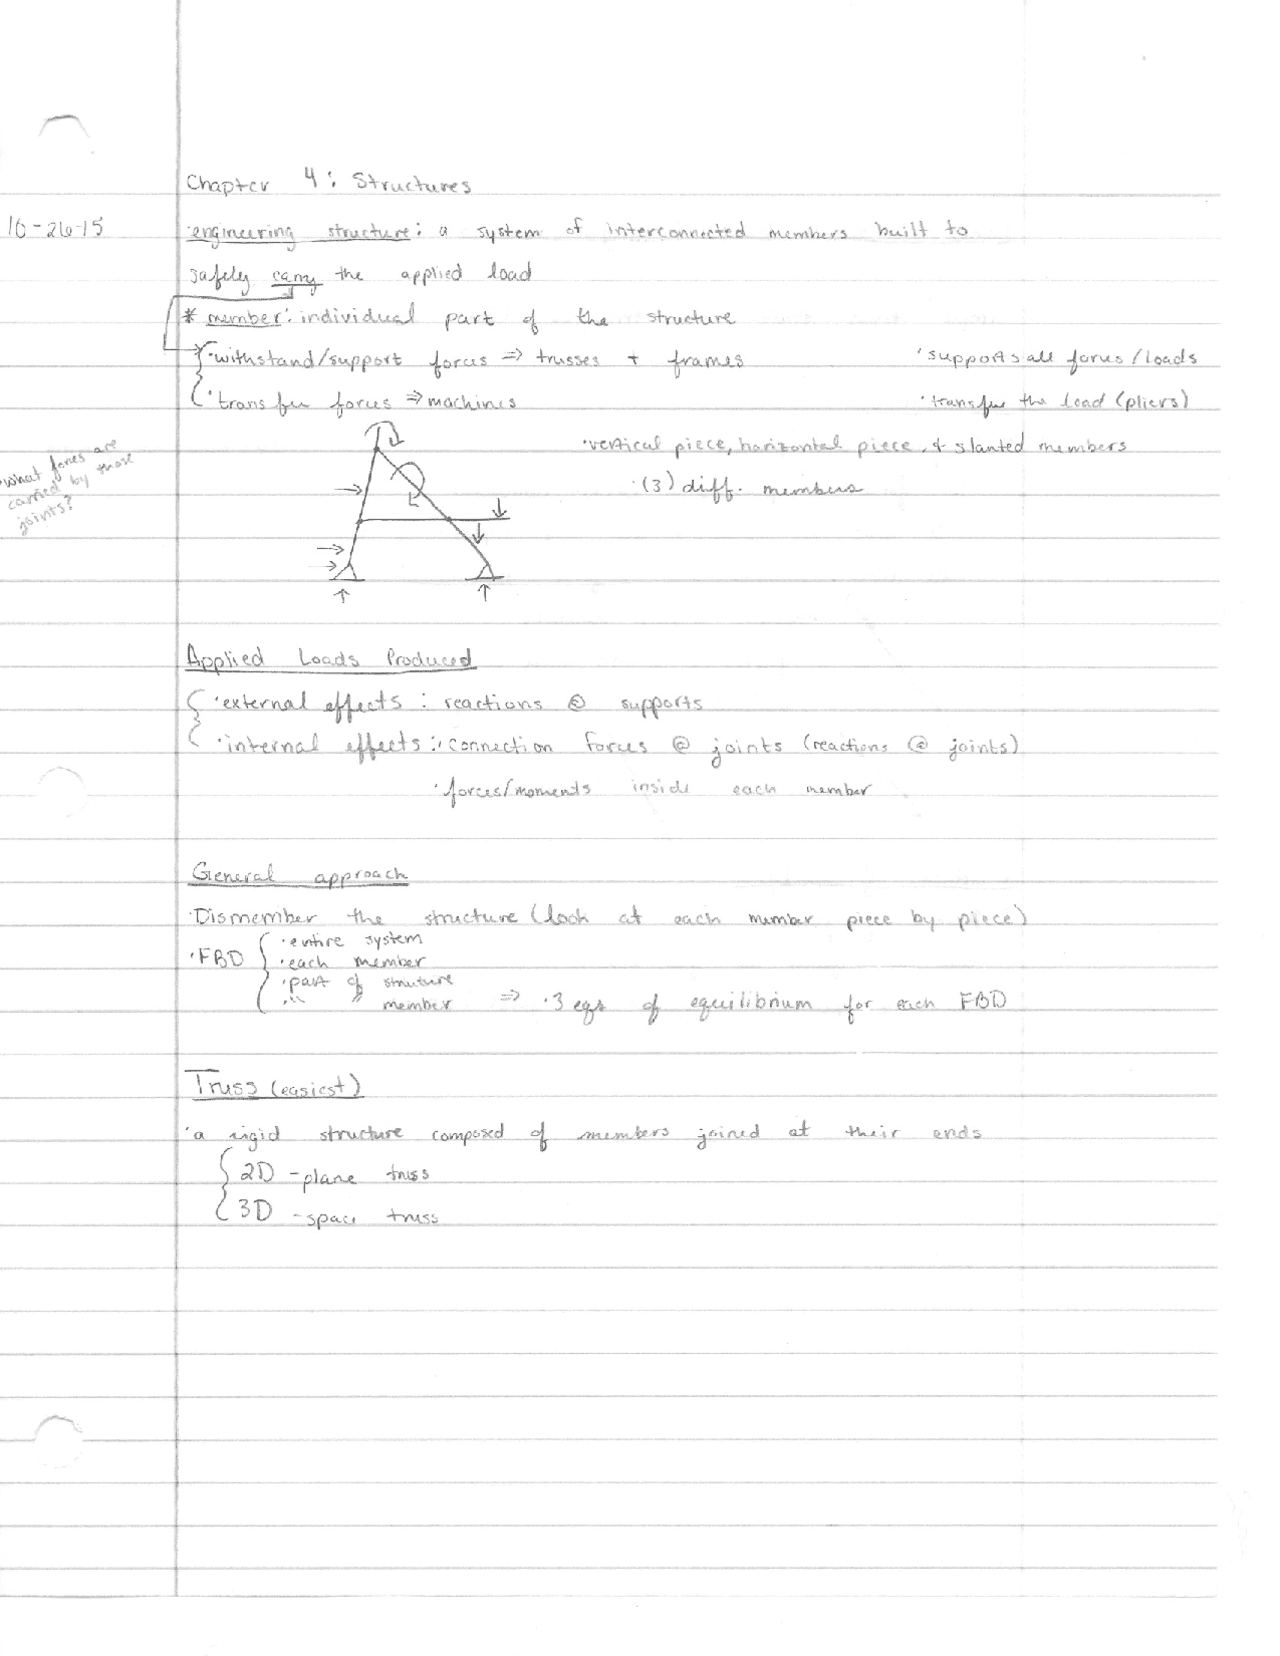 Chapter 4: Structures
10-26-15
·engineering structure: a system of interconnected members built to
safely carry the applied load
* member: individual part of the structure
·withstand/support forces ⇒ trusses + frames ·supports all forces/loads
·transfer forces ⇒ machines ·transfer the load (pliers)
·what forces are
carried by those
joints?
·vertical piece, horizontal piece, & slanted members
·(3) diff. members
Applied Loads Produced
·external effects: reactions @ supports
·internal effects: ·connection forces @ joints (reactions @ joints)
·forces/moments inside each member
General approach
·Dismember the structure (look at each member piece by piece)
·FBD
·entire system
·each member
·part of structure
·" " member ⇒ ·3 eqs of equilibrium for each FBD
Truss (easiest)
·a rigid structure composed of members joined at their ends
2D - plane truss
3D - space truss